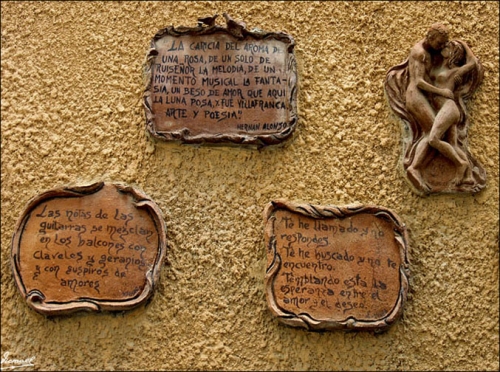 LA CARICIA DEL AROMA DE
UNA ROSA, DE UN SOLO DE
RUISEÑOR LA MELODIA, DE UN
MOMENTO MUSICAL LA FANTA-
SIA, UN BESO DE AMOR QUE AQUI
LA LUNA POSA, Y FUE VILLAFRANCA,
ARTE Y POESIA".
HERNAN ALONSO
Las notas de las
guitarras se mezclan
en los balcones con
claveles y geranios
y con suspiros de
amores
Te he llamado y no
respondes.
Te he buscado y no te
encuentro.
Temblando está la
esperanza entre el
amor y el deseo.